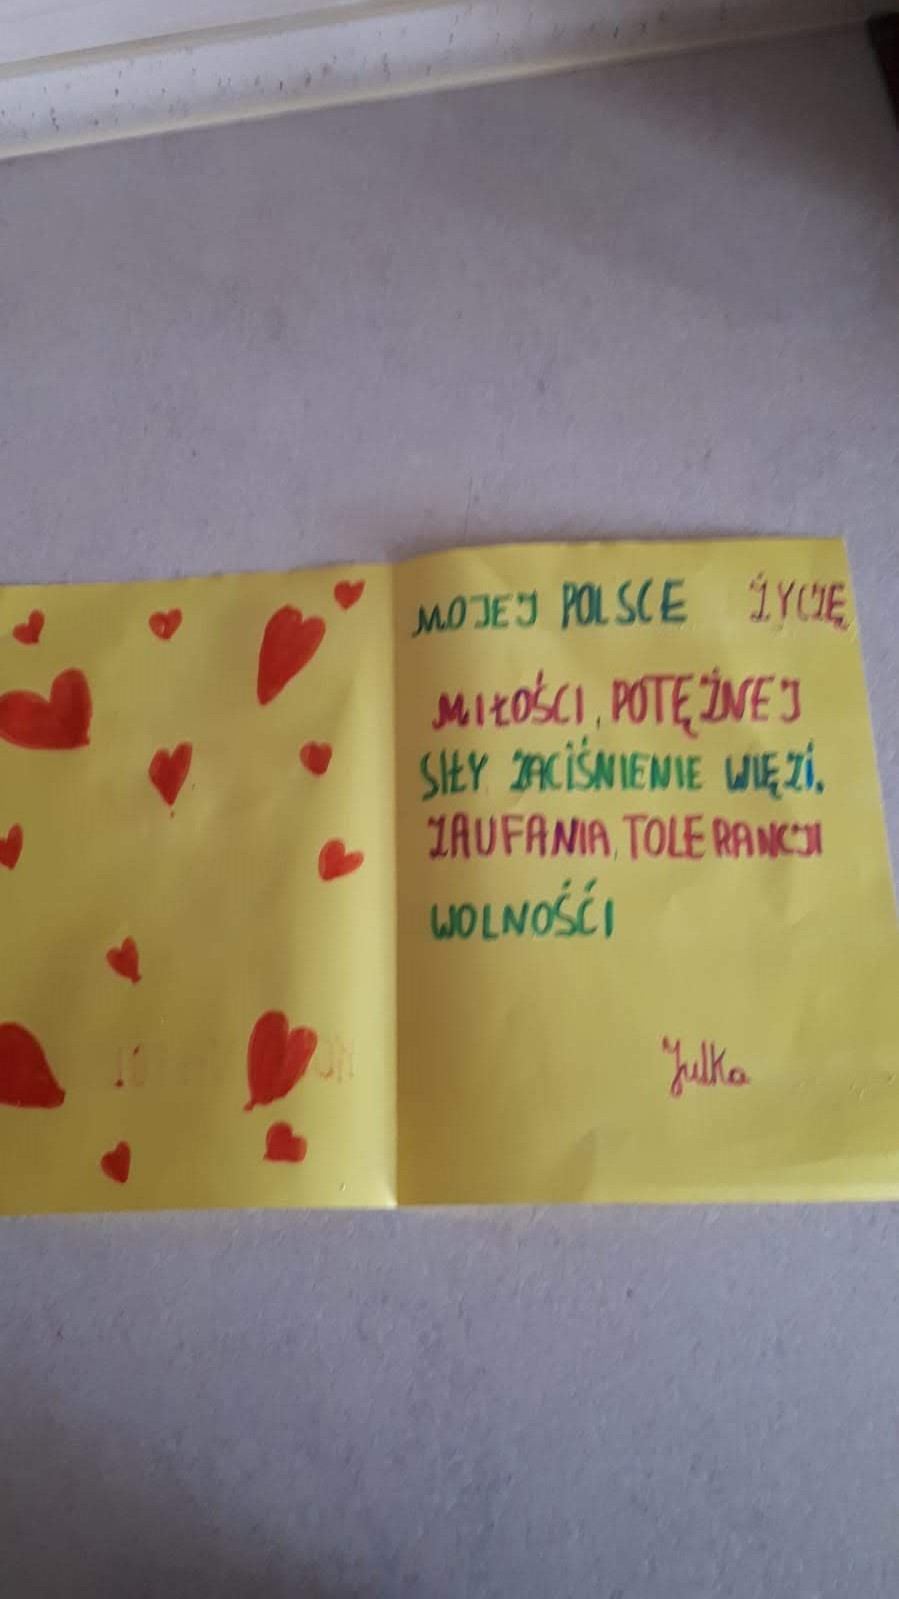 MOJEJ POLSCE ŻYCZĘ
MIŁOŚCI, POTĘŻNEJ
SIŁY ZACIŚNIENIE WIĘZI.
ZAUFANIA, TOLERANCJI
WOLNOŚĆI
Julka